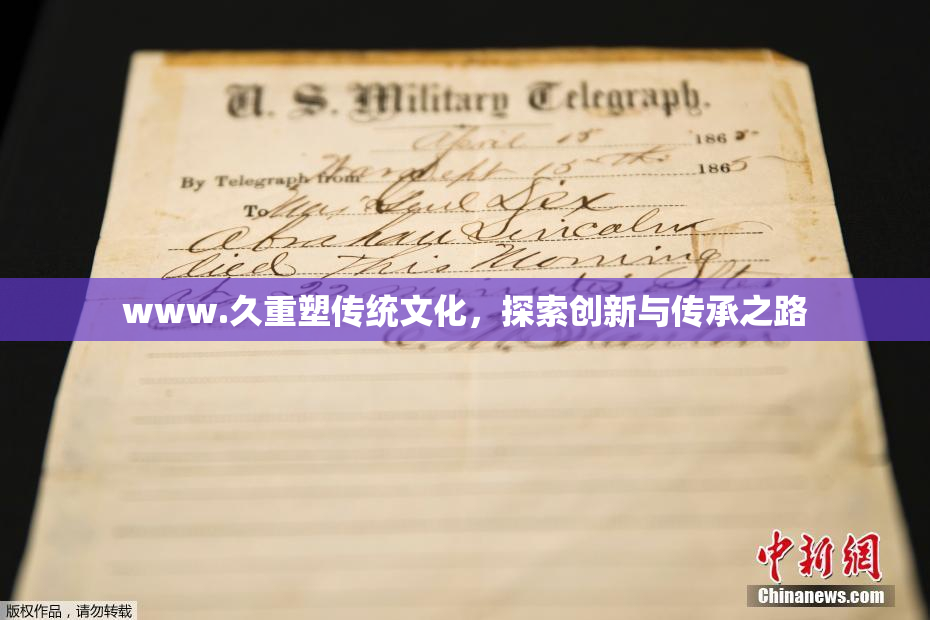 U. S. Military Telegraph.
April 15 1865
By Telegraph from War Dept 15th 1865
To Maj Genl Dix
Abraham Lincoln
died This Morning
at 22 minutes after
www.久重塑传统文化，探索创新与传承之路
E. M. Stanton
中新网
Chinanews.com
版权作品，请勿转载